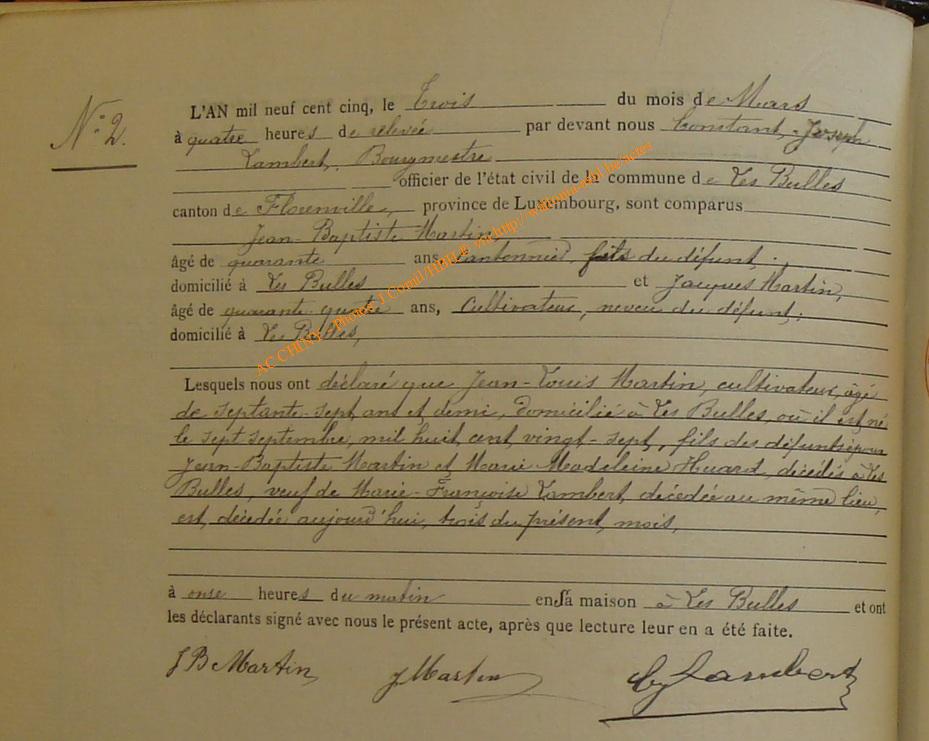 N° 2.
L'AN mil neuf cent cinq, le Trois du mois de Mars
à quatre heures de relevée par devant nous Constant, Joseph
Lambert, Bourgmestre
officier de l'état civil de la commune de Les Bulles
canton de Florenville, province de Luxembourg, sont comparus
Jean-Baptiste Martin
âgé de quarante ans, Cantonnier, fils du défunt,
domicilié à Les Bulles et Jacques Martin,
âgé de quarante ans, Cultivateur, neveu du défunt,
domicilié à Les Bulles,
Lesquels nous ont déclaré que Jean-Louis Martin, cultivateur, âgé
de septante-sept ans et demi, domicilié à Les Bulles, où il est né
le sept septembre, mil huit cent vingt-sept, fils des défunts époux
Jean-Baptiste Martin et Marie Madeleine Huard, décédés à Les
Bulles, veuf de Marie-Françoise Lambert, décédée au même lieu,
est, décédée aujourd'hui, trois du présent, mois,
à onse heures du matin en sa maison à Les Bulles et ont
les déclarants signé avec nous le présent acte, après que lecture leur en a été faite.
JB Martin J Martin CJ Lambert
AC CHINY - Photos J Comil/HBLI